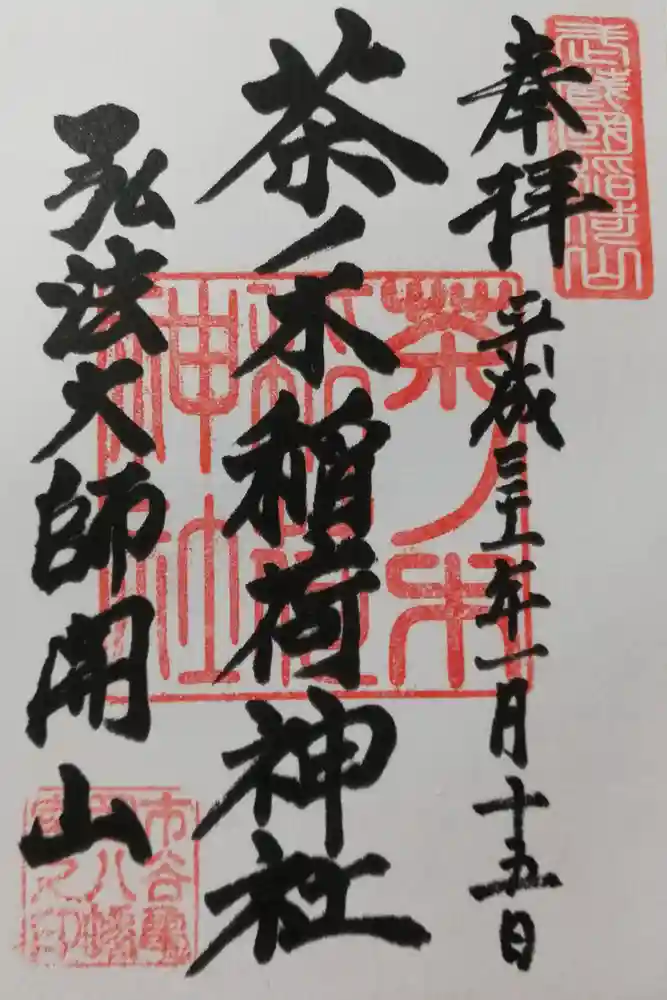 武蔵國稲荷山
奉拝 平成三十一年一月十五日
茶ノ木稲荷神社
茶ノ木
稲荷
神社
弘法大師開山
市谷龜
岡八幡
宮之印